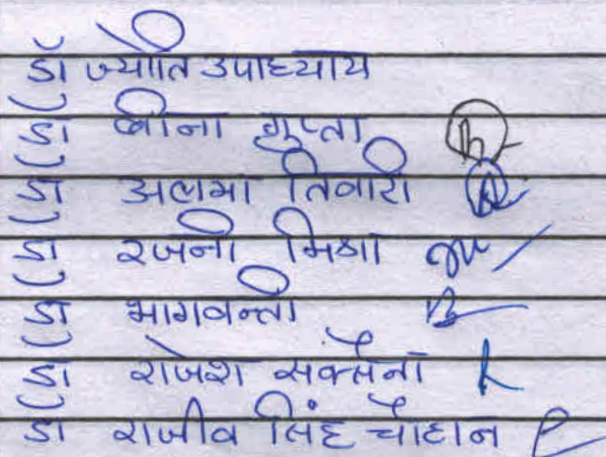 डॉ ज्योति उपाध्याय
डा बीना गुप्ता
डा अलमा तिवारी
डा रजनी मिश्रा
डा भागवन्ती
डा राजेश सक्सेना
डा राजीव सिंह चौहान